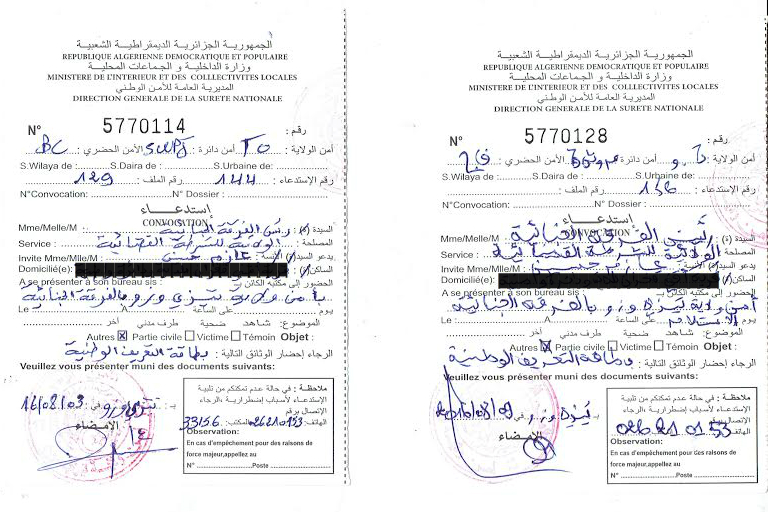 الجمهورية الجزائرية الديمقراطية الشعبية
REPUBLIQUE ALGERIENNE DEMOCRATIQUE ET POPULAIRE
وزارة الداخلية و الجماعات المحلية
MINISTERE DE L'INTERIEUR ET DES COLLLECTIVITES LOCALES
المديرية العامة للأمن الوطني
DIRECTION GENERALE DE LA SURETE NATIONALE
N° 5770114 رقم :
أمن الولاية : TO أمن دائرة SWPJ الأمن الحضري : BC
S.Wilaya de : S.Daira de : S.Urbaine de:
رقم الإستدعاء : 144 رقم الملف : 129
N°Convocation: N° Dossier :
إستدعاء
CONVOCATION
Mme/Melle/M : رئيس الفرقة الجنائية السيدة (ة) :
Service : الولائية للشرطة القضائية المصلحة :
Invite Mme/Mlle/M : يدعو السيد
Domicilié(e): الساكن(ة)
A se présenter à son bureau sis : الحضور إلى مكتبه الكائن ب
بأمن ولاية تيزي وزو بالفرقة الجنائية
Le A على الساعة يوم
الموضوع: شاهد ضحية طرف مدني آخر
Autres X Partie civile Victime Témoin Objet :
الرجاء إحضار الوثائق التالية : بطاقة التعريف الوطنية
Veuillez vous présenter muni des documents suivants:
16/08/03 في تيزي وزو بـ
الإمضاء
ملاحظة : في حالة عدم تمكنكم من تلبية
الإستدعاء لأسباب إضطرارية ،الرجاء
الإتصال برقم
الهاتف: 026210153 المكتب: 33156
Observation:
En cas d'empêchement pour des raisons de
force majeur,appellez au
N° Poste
الجمهورية الجزائرية الديمقراطية الشعبية
REPUBLIQUE ALGERIENNE DEMOCRATIQUE ET POPULAIRE
وزارة الداخلية و الجماعات المحلية
MINISTERE DE L'INTERIEUR ET DES COLLLECTIVITES LOCALES
المديرية العامة للأمن الوطني
DIRECTION GENERALE DE LA SURETE NATIONALE
N° 5770128 رقم :
أمن الولاية : أمن دائرة الأمن الحضري :
S.Wilaya de : S.Daira de : S.Urbaine de:
رقم الإستدعاء : 156 رقم الملف :
N°Convocation: N° Dossier :
إستدعاء
CONVOCATION
Mme/Melle/M : رئيس الفرقة الجنائية السيدة (ة) :
Service : الولائية للشرطة القضائية المصلحة :
Invite Mme/Mlle/M : يدعو السيد
Domicilié(e): الساكن(ة)
A se présenter à son bureau sis : الحضور إلى مكتبه الكائن ب
أمن ولاية تيزي وزو بالفرقة الجنائية
Le الإستلام A على الساعة يوم
الموضوع: شاهد ضحية طرف مدني آخر
Autres X Partie civile Victime Témoin Objet :
الرجاء إحضار الوثائق التالية : بطاقة التعريف الوطنية
Veuillez vous présenter muni des documents suivants:
في تيزي وزو بـ
الإمضاء
ملاحظة : في حالة عدم تمكنكم من تلبية
الإستدعاء لأسباب إضطرارية ،الرجاء
الإتصال
الهاتف 026210153
Observation:
En cas d'empêchement pour des raisons de
force majeur,appellez au
N° Poste